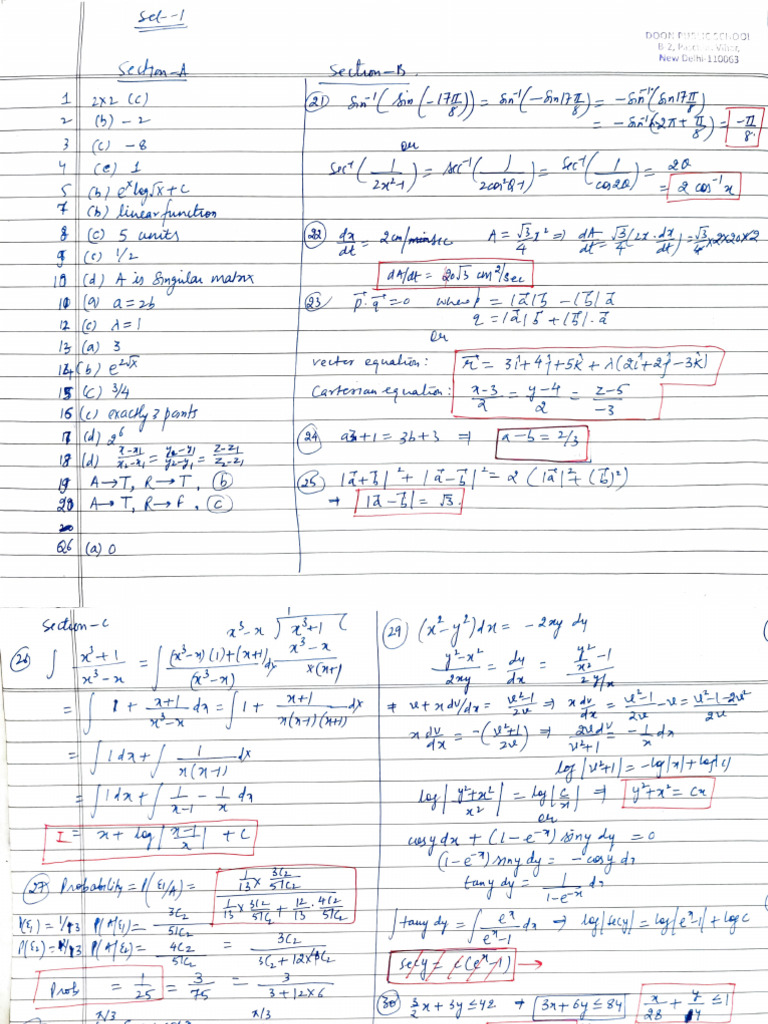 Set-1
DOON PUBLIC SCHOOL
B-2, Paschim Vihar,
New Delhi-110063
Section-A
1 2×2 (c)
2 (b) -2
3 (c) -8
4 (c) 1
5 (b) eˣ log√x + c
7 (b) linear function
8 (c) 5 units
9 (c) 1/2
10 (d) A is singular matrix
(a) a = 2b
12 (c) λ = 1
13 (a) 3
14 (b) e^(2√x)
15 (c) 3/4
16 (c) exactly 2 points
17 (d) 2⁶
18 (d) (x-x₁)/(x₂-x₁) = (y-y₁)/(y₂-y₁) = (z-z₁)/(z₂-z₁)
19 A→T, R→T, (b)
20 A→T, R→F, (c)
Q6 (a) 0
Section-B
(21) sin⁻¹(sin(-17π/8)) = sin⁻¹(-sin17π/8) = -sin⁻¹(sin17π/8)
= -sin⁻¹(2π + π/8) = -π/8
or
sec⁻¹(1/(2x²-1)) = sec⁻¹(1/(2cos²θ-1)) = sec⁻¹(1/cos2θ) = 2θ
= 2cos⁻¹x
(22) dx/dt = 2cm/sec A = √3/4 x² ⇒ dA/dt = √3/4 (2x·dx/dt) = √3/4 ×2×20×2
dA/dt = 20√3 cm²/sec
(23) p⃗·q⃗ = 0 where p = |a⃗|b⃗ - |b⃗|a⃗
q = |a⃗|b⃗ + |b⃗|·a⃗
or
vector equation: r⃗ = 3î+4ĵ+5k̂ + λ(2î+2ĵ-3k̂)
Carterian equation: (x-3)/2 = (y-4)/2 = (z-5)/-3
(24) a3+1 = 3b+3 ⇒ a-b = 2/3
(25) |a⃗+b⃗|² + |a⃗-b⃗|² = 2(|a⃗|²+(b⃗)²)
→ |a⃗-b⃗| = √3.
Section-C
x³-x ) x³+1 ( 1
x³-x
x(x+1
(26) ∫ (x³+1)/(x³-x) = ∫ ((x³-x)(1)+(x+1))/(x³-x) dx
= ∫ 1 + (x+1)/(x³-x) dx = ∫ 1 + (x+1)/(x(x-1)(x+1)) dx
= ∫ 1dx + ∫ 1/(x(x-1)) dx
= ∫ 1dx + ∫ 1/(x-1) - 1/x dx
I = x + log|(x-1)/x| + c
(27) Probability = P(E₁/A) = (1/13 × 3C₂/51C₂)/(1/13 × 3C₂/51C₂ + 12/13 · 4C₂/51C₂)
P(E₁) = 1/13 P(A|E₁) = 3C₂/51C₂
P(A|E₂) = 4C₂/51C₂ = 3C₂/(3C₂+12×4C₂)
Prob = 1/25 = 3/75 = 3/(3+12×6)
π/3 π/3
(29) (x²-y²)dx = -2xy dy
(y²-x²)/2xy = dy/dx = (y²/x² - 1)/(2y/x)
⇒ v + x dv/dx = (v²-1)/2v ⇒ x dv/dx = (v²-1)/2v - v = (v²-1-2v²)/2v
x dv/dx = -((v²+1)/2v) ⇒ 2v dv/(v²+1) = -1/x dx
log|v²+1| = -log|x| + log|c|
log|(y²+x²)/x²| = log|c/x| ⇒ y²+x² = cx
or
cosy dx + (1-e⁻ˣ) siny dy = 0
(1-e⁻ˣ) siny dy = -cosy dx
tany dy = 1/(1-e⁻ˣ) dx
∫tany dy = ∫ eˣ/(eˣ-1) dx ⇒ log|secy| = log|eˣ-1| + logC
secy = c(eˣ-1) →
(30) 3/2 x + 3y ≤ 42 → 3x+6y ≤ 84 x/28 + y/14 ≤ 1